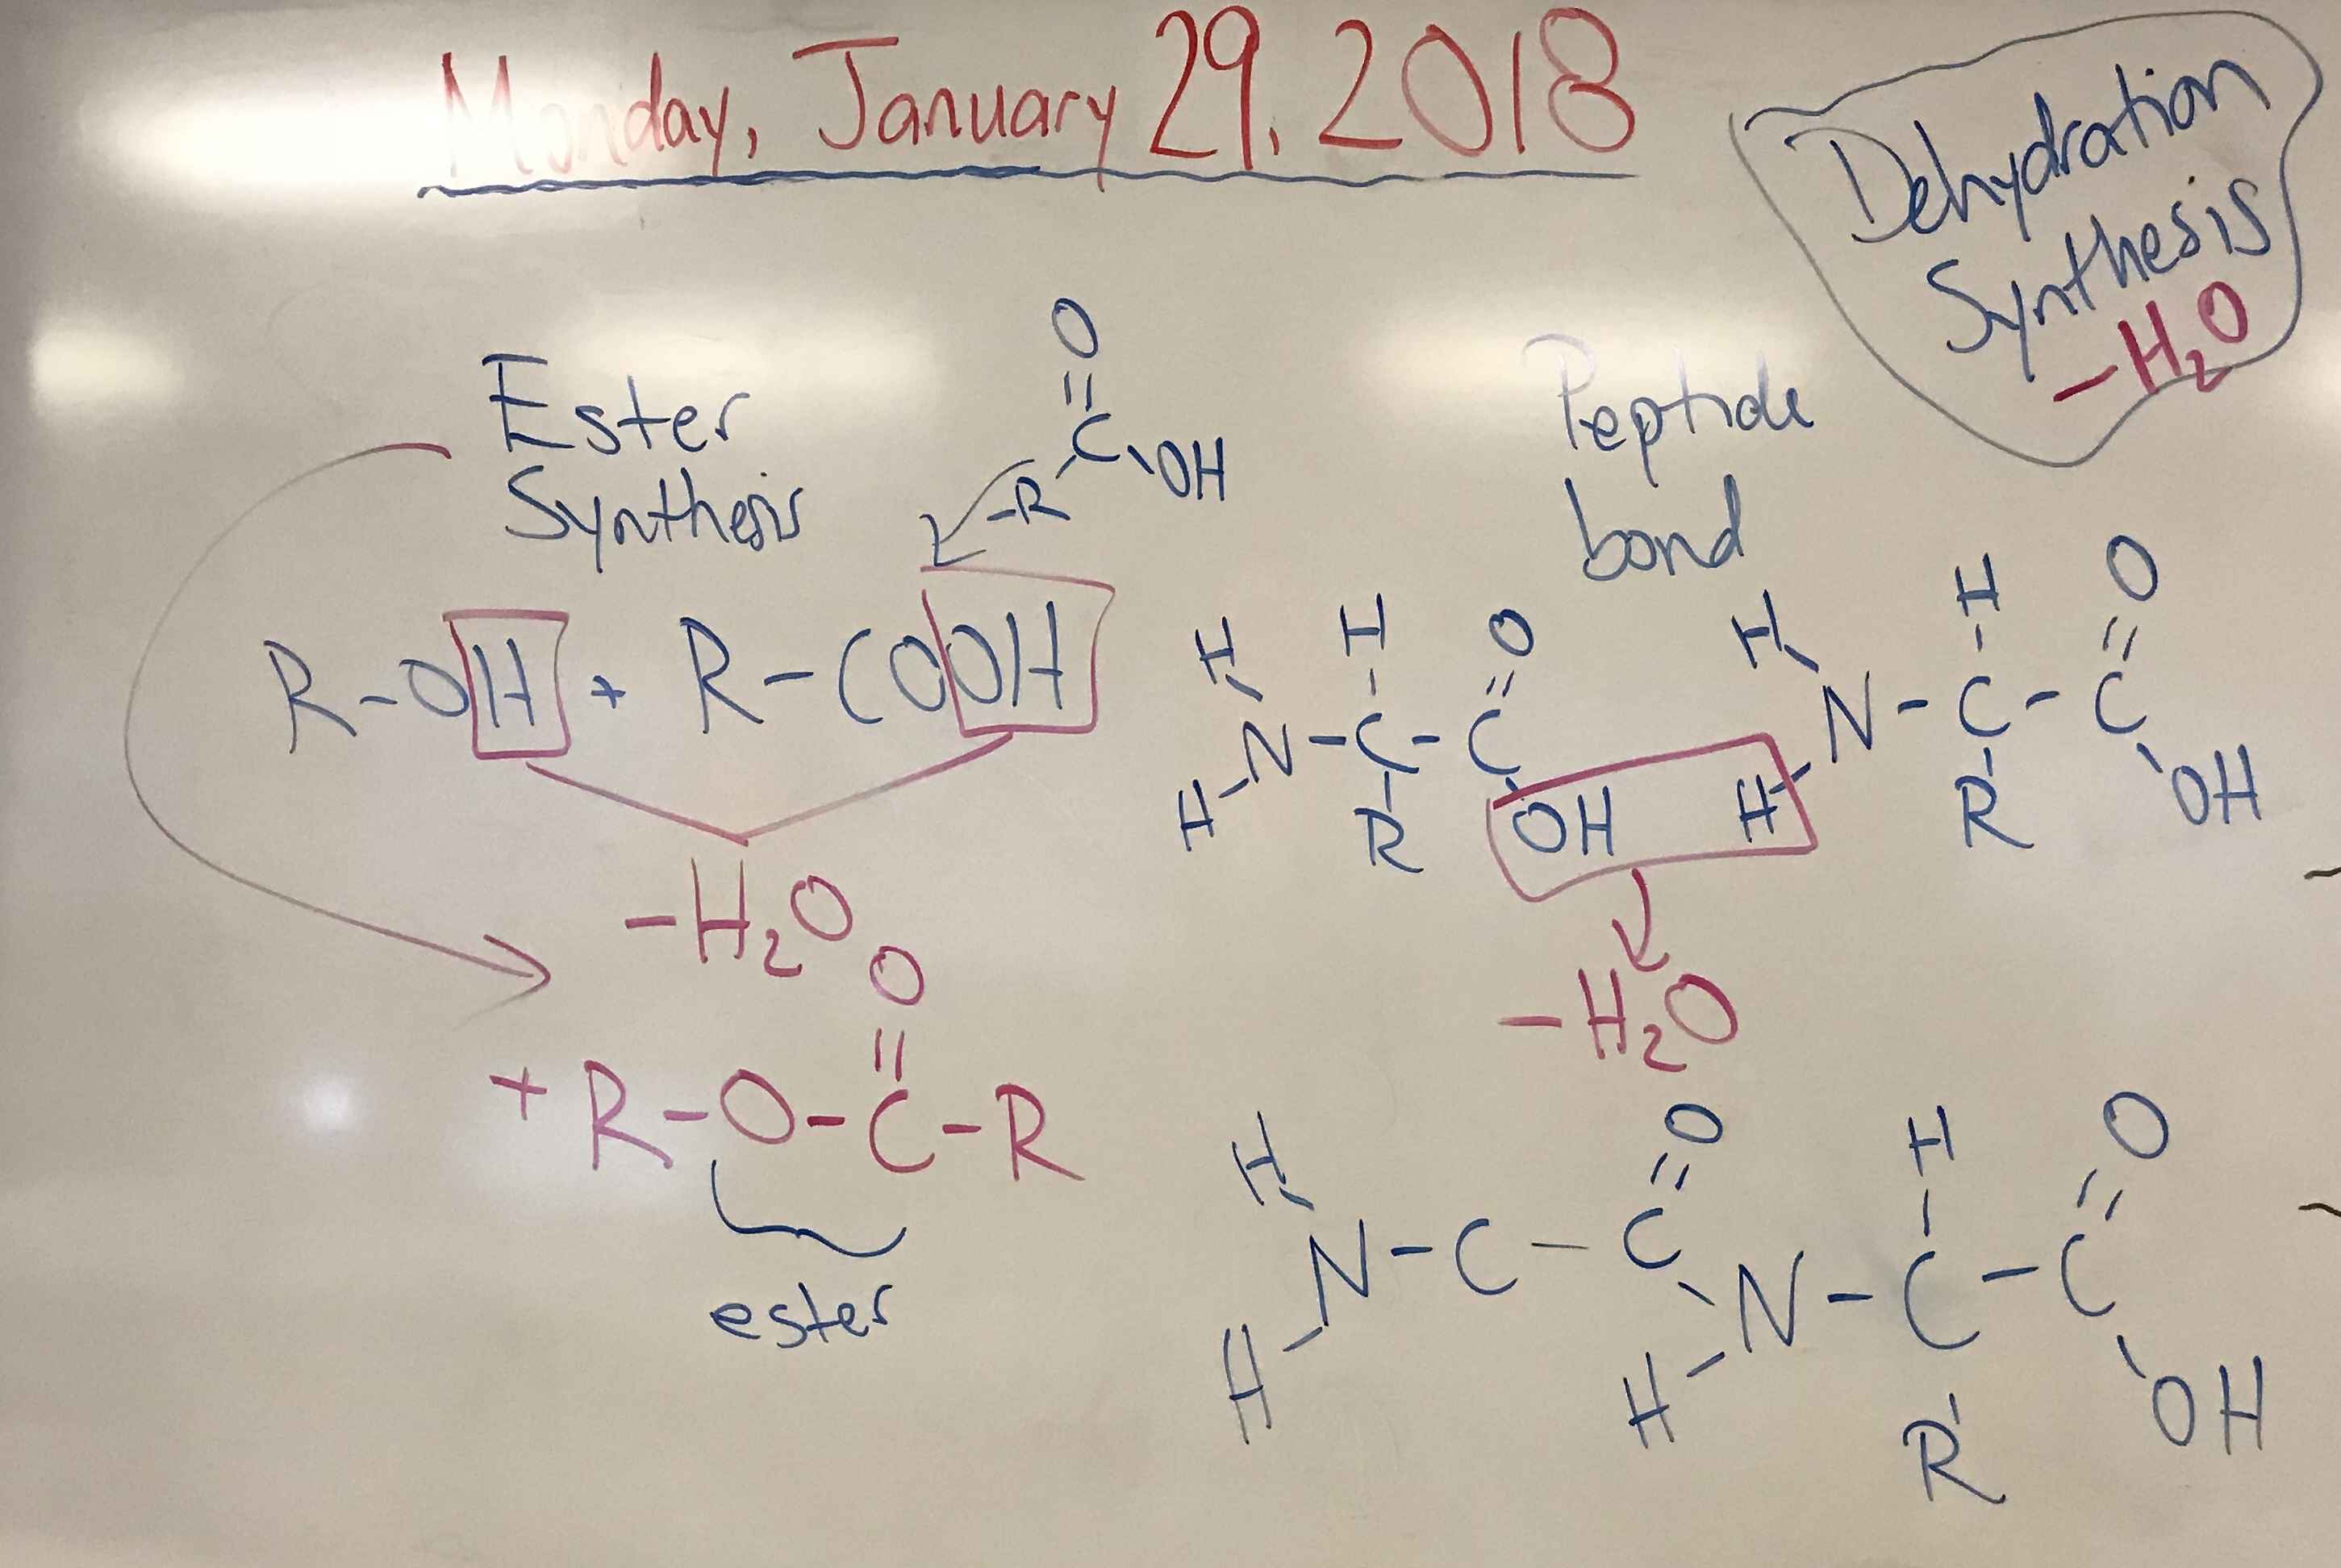 Monday, January 29, 2018
Dehydration
Synthesis
-H₂O
Ester
Synthesis
O
=
-R C OH
R-OH + R-COOH
-H₂O
O
=
+ R-O-C-R
ester
Peptide
bond
H H O H H O
H-N-C-C OH H-N-C-C OH
R R
-H₂O
H O H O
N-C-C N-C-C
H H R OH